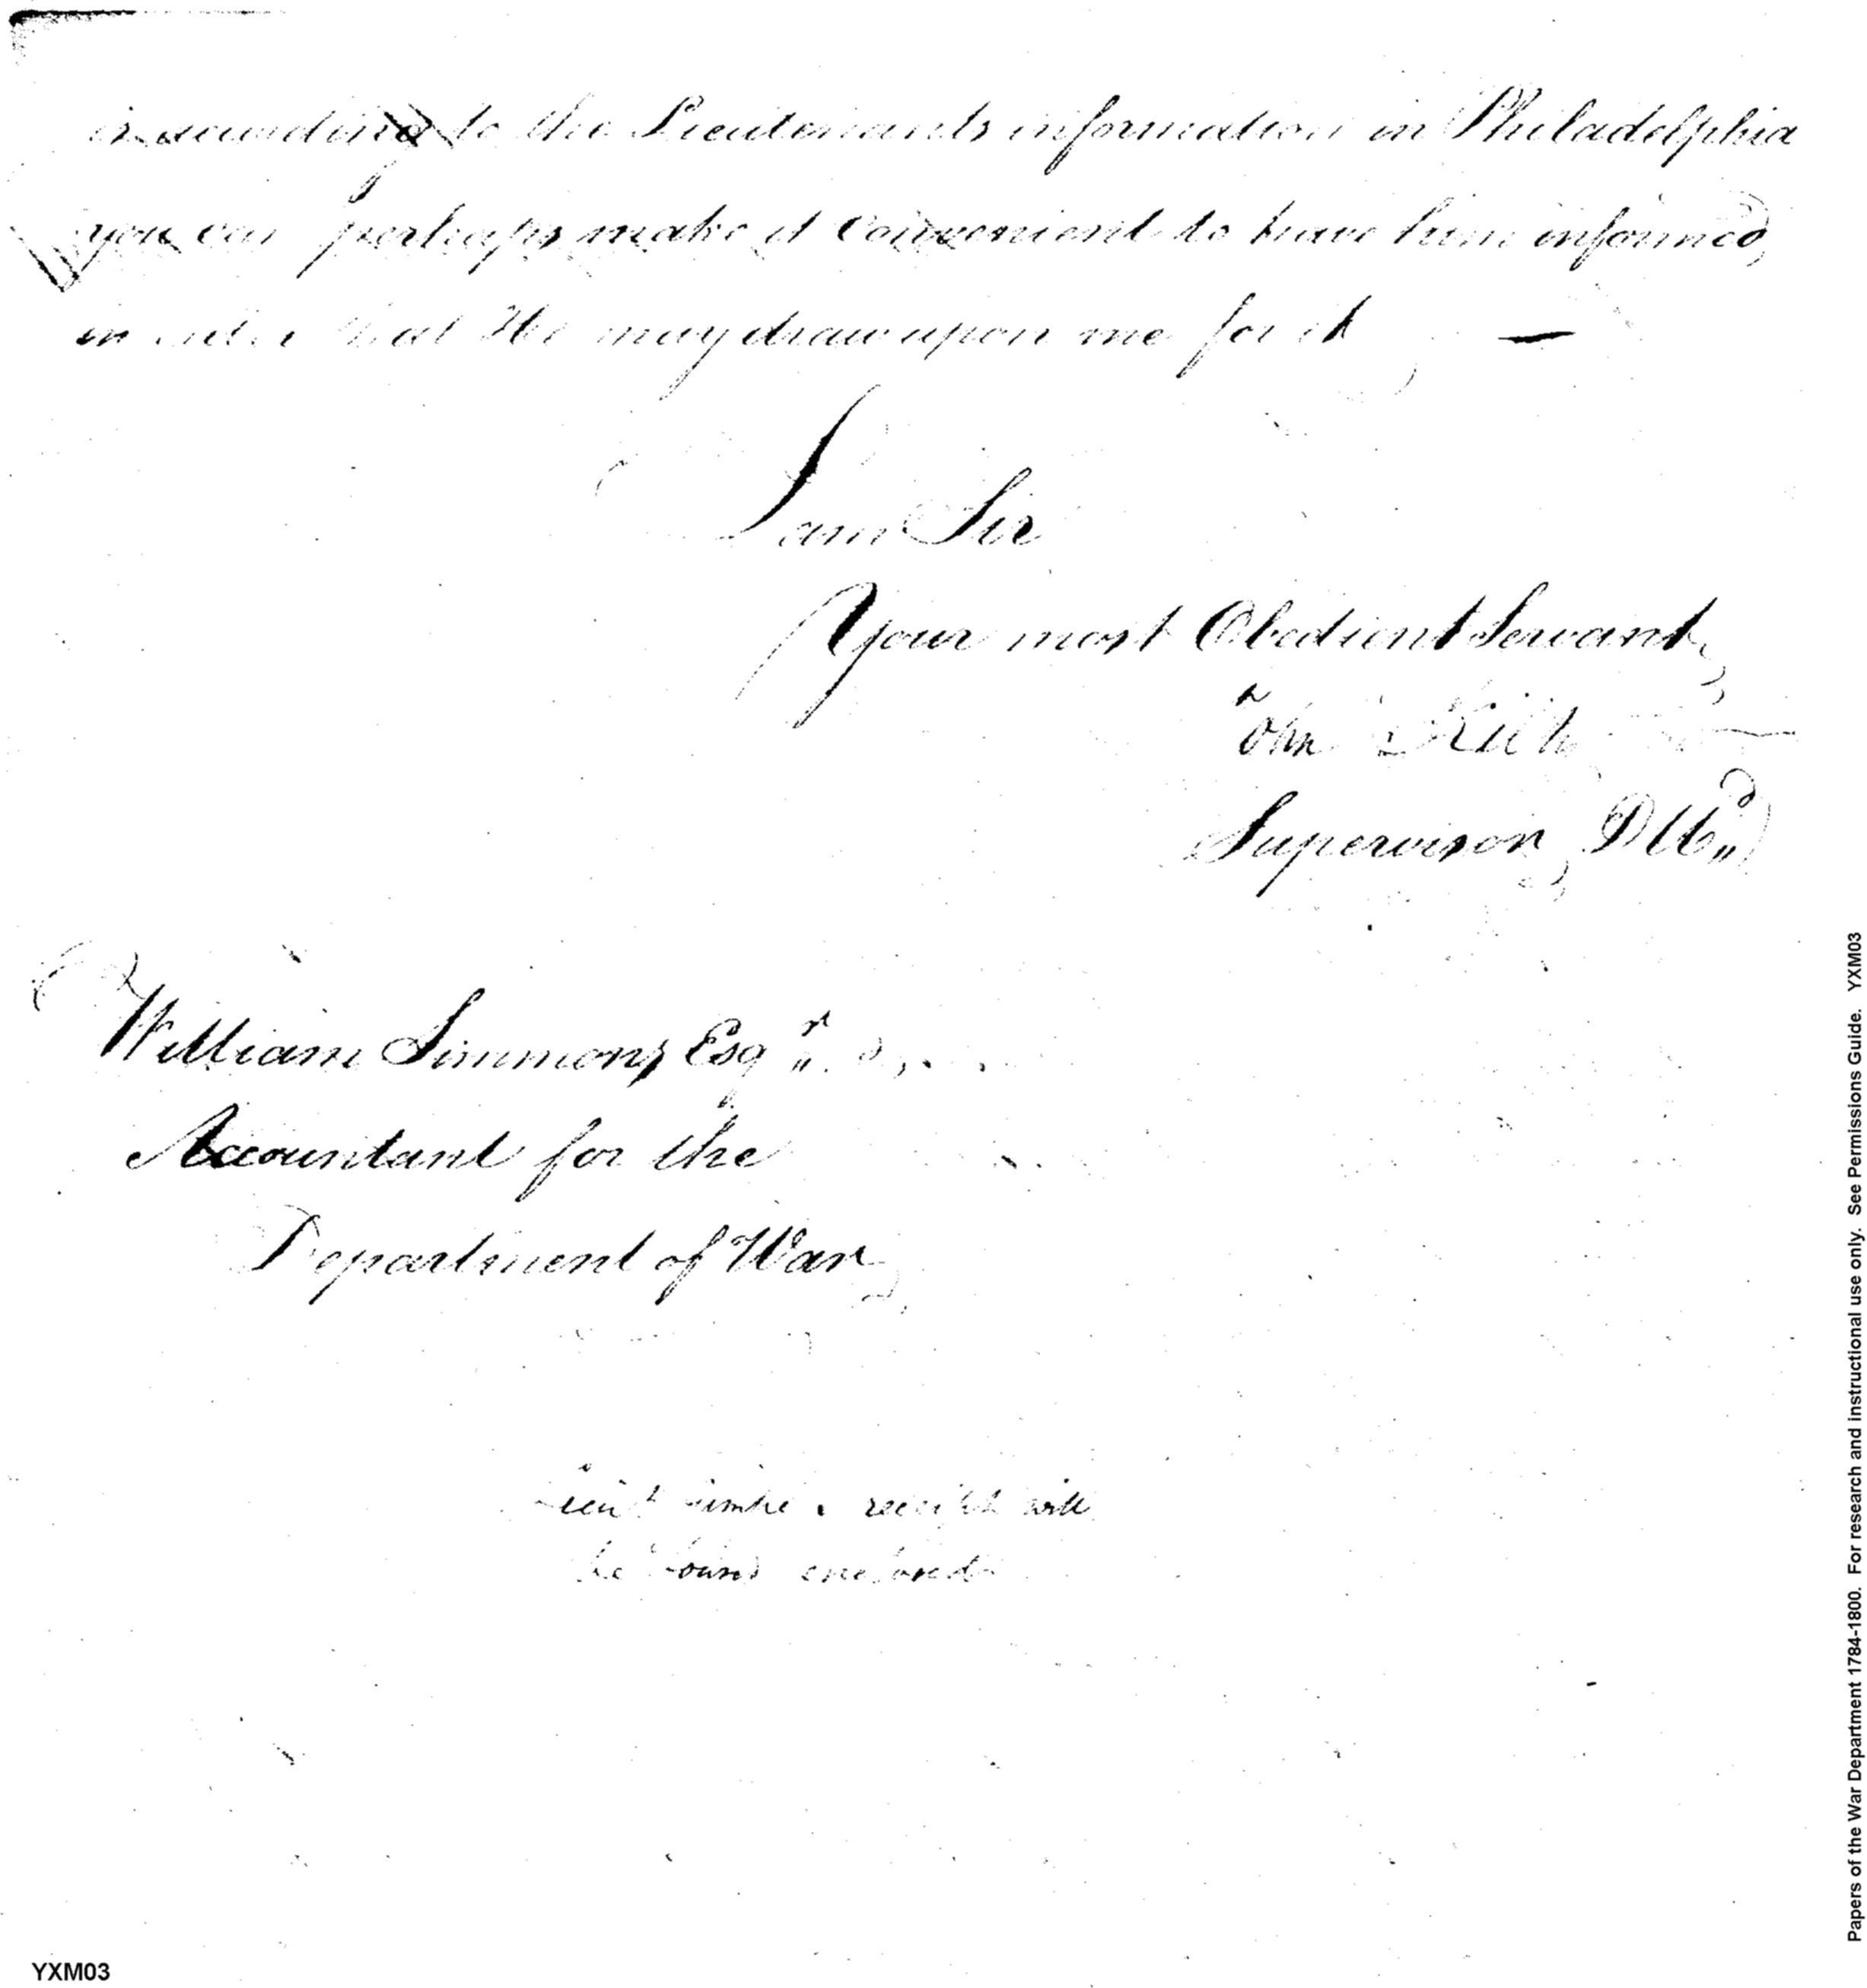 is according to the Lieutenants information in Philadelphia
you can perhaps make it convenient to have him informed,
in order that He may draw upon me for it, —
I am Sir
Your most Obedient Servant,
Supervisor, Md
William Simmons Esqr
Accountant for the
Department of War,
receipt will
be found enclosed
Papers of the War Department 1784-1800. For research and instructional use only. See Permissions Guide. YXM03
YXM03